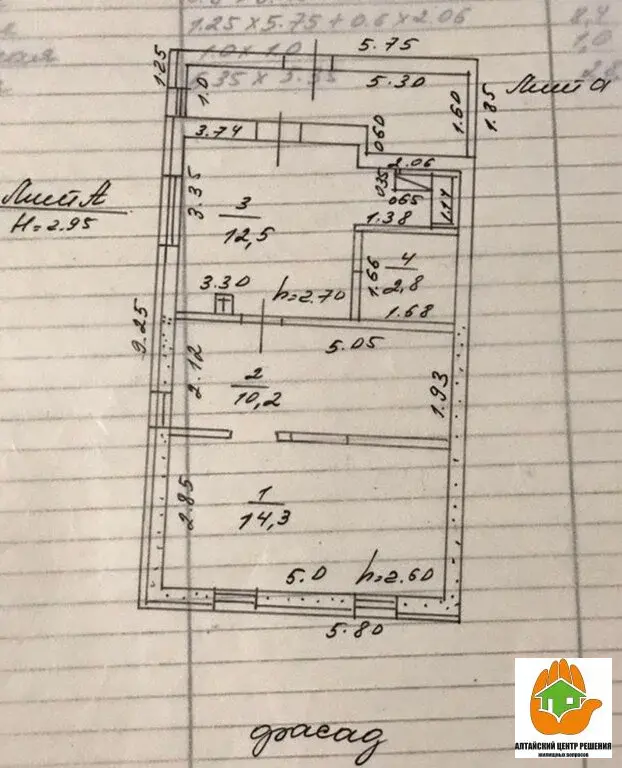 1.25 x 5.75 + 0.6 x 2.06 8,4
1.0 x 1.0 1,0
5.75
1.25
1.0
5.30
1.60
1.85
Лит а
3.74
060
2.06
035
065
1.14
3.35
3
12,5
1.38
Лит А
H=2.95
1.66
4
2,8
3.30
h=2.70
1.68
9.25
5.05
2.12
2
10,2
1.93
2.85
1
14,3
5.0
h=2.60
5.80
фасад
АЛТАЙСКИЙ ЦЕНТР РЕШЕНИЯ
жилищных вопросов